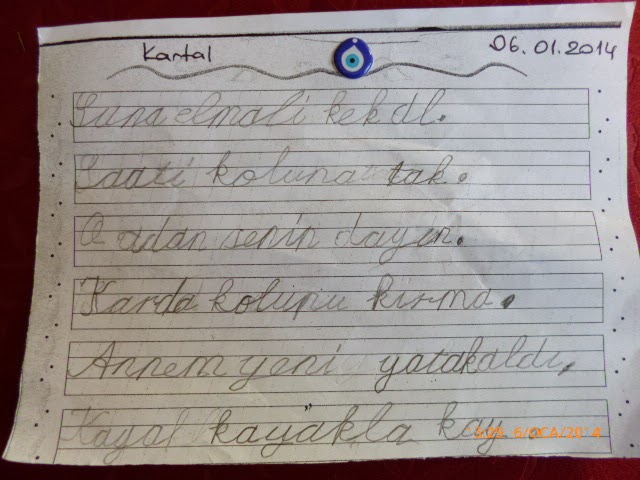 Kartal 06.01.2014
Suna elmali kek al.
Saati koluna tak.
O adan senin dayın.
Karda kolunu kırma.
Annem yeni yatak aldı.
kayakla kay
6/OCA/2014